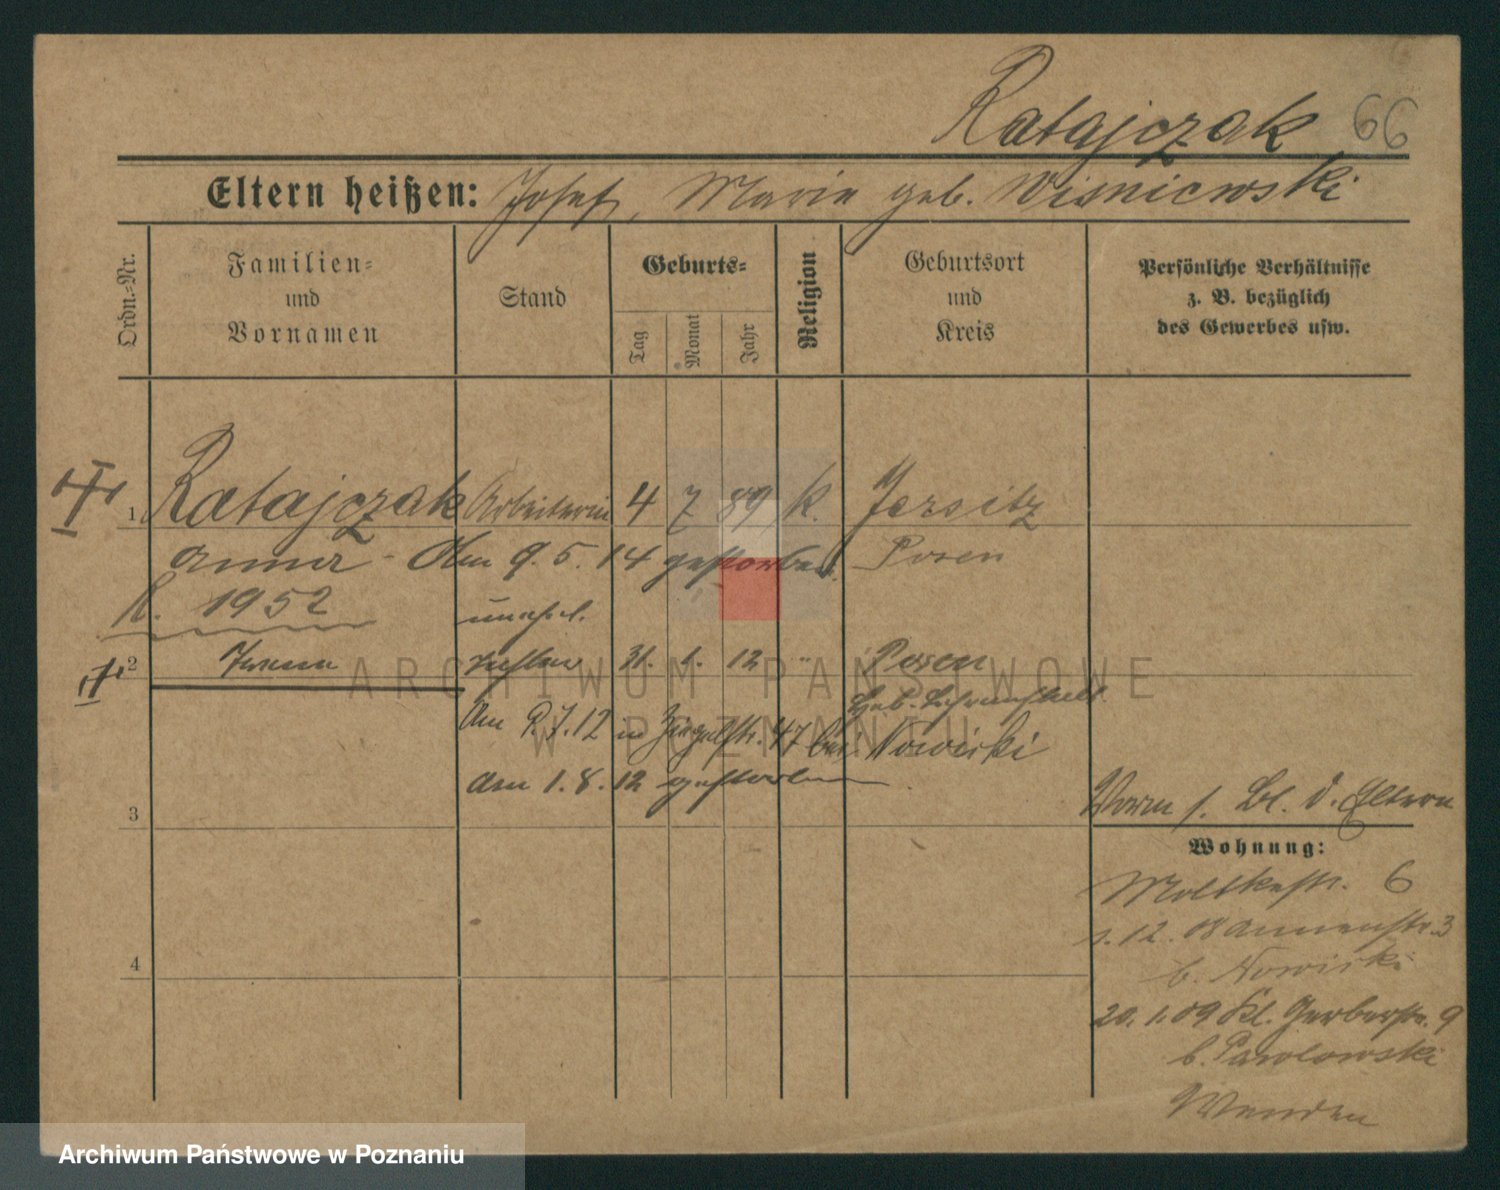 Ratajczak 66
Eltern heißen: Josef, Marie geb. Wisniewski
Ordn.-Nr.
Familien-
und
Vornamen
Stand
Geburts-
Tag
Monat
Jahr
Religion
Geburtsort
und
Kreis
Persönliche Verhältnisse
z. B. bezüglich
des Gewerbes usw.
1 Ratajczak Arbeiterin 4 7 89 K. Jersitz
Anna - Am 9. 5. 14 gestorben. Posen
K. 1952
unehel.
2 Irena Tochter 31. 1. 12 " Posen
Am 9.7.12 in Ziegelstr. 47 bei Nowicki
am 1. 8. 12 gestorben
3
4
Vorm s. Bl. d. Eltern
Wohnung:
Moltkestr. 6
1. 12. 08 Annenstr. 3
b. Nowicki
20. 1. 09 Kl. Gerberstr. 9
b. Pawlowski
Wenden
ARCHIWUM PAŃSTWOWE
W POZNANIU
Archiwum Państwowe w Poznaniu